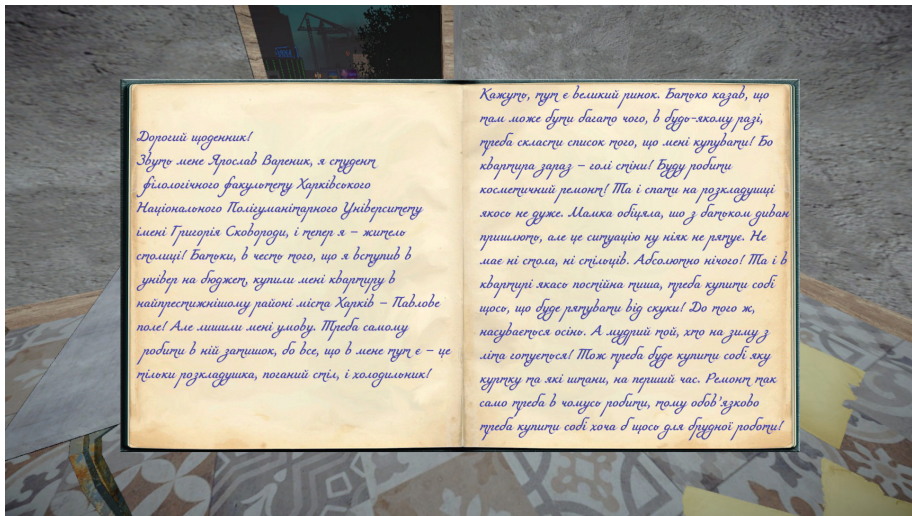 Дорогий щоденник!
Звуть мене Ярослав Вареник, я студент
філологічного факультету Харківського
Національного Полігуманітарного Університету
імені Григорія Сковороди, і тепер я – житель
столиці! Батьки, в честь того, що я вступив в
універ на бюджет, купили мені квартиру в
найпрестижнішому районі міста Харків – Павлове
поле! Але лишили мені умову. Треба самому
робити в ній затишок, бо все, що в мене тут є – це
тільки розкладушка, поганий стіл, і холодильник!
Кажуть, тут є великий ринок. Батько казав, що
там може бути багато чого, в будь-якому разі,
треба скласти список того, що мені купувати! Бо
квартира зараз – голі стіни! Буду робити
косметичний ремонт! Та і спати на розкладушці
якось не дуже. Мамка обіцяла, шо з батьком диван
пришлють, але це ситуацію ну ніяк не рятує. Не
має ні стола, ні стільців. Абсолютно нічого! Та і в
квартирі якась постійна тиша, треба купити собі
щось, що буде рятувати від скуки! До того ж,
насувається осінь. А мудрий той, хто на зиму з
літа готується! Тож треба буде купити собі яку
куртку та які штани, на перший час. Ремонт так
само треба в чомусь робити, тому обов'язково
треба купити собі хоча б щось для брудної роботи!